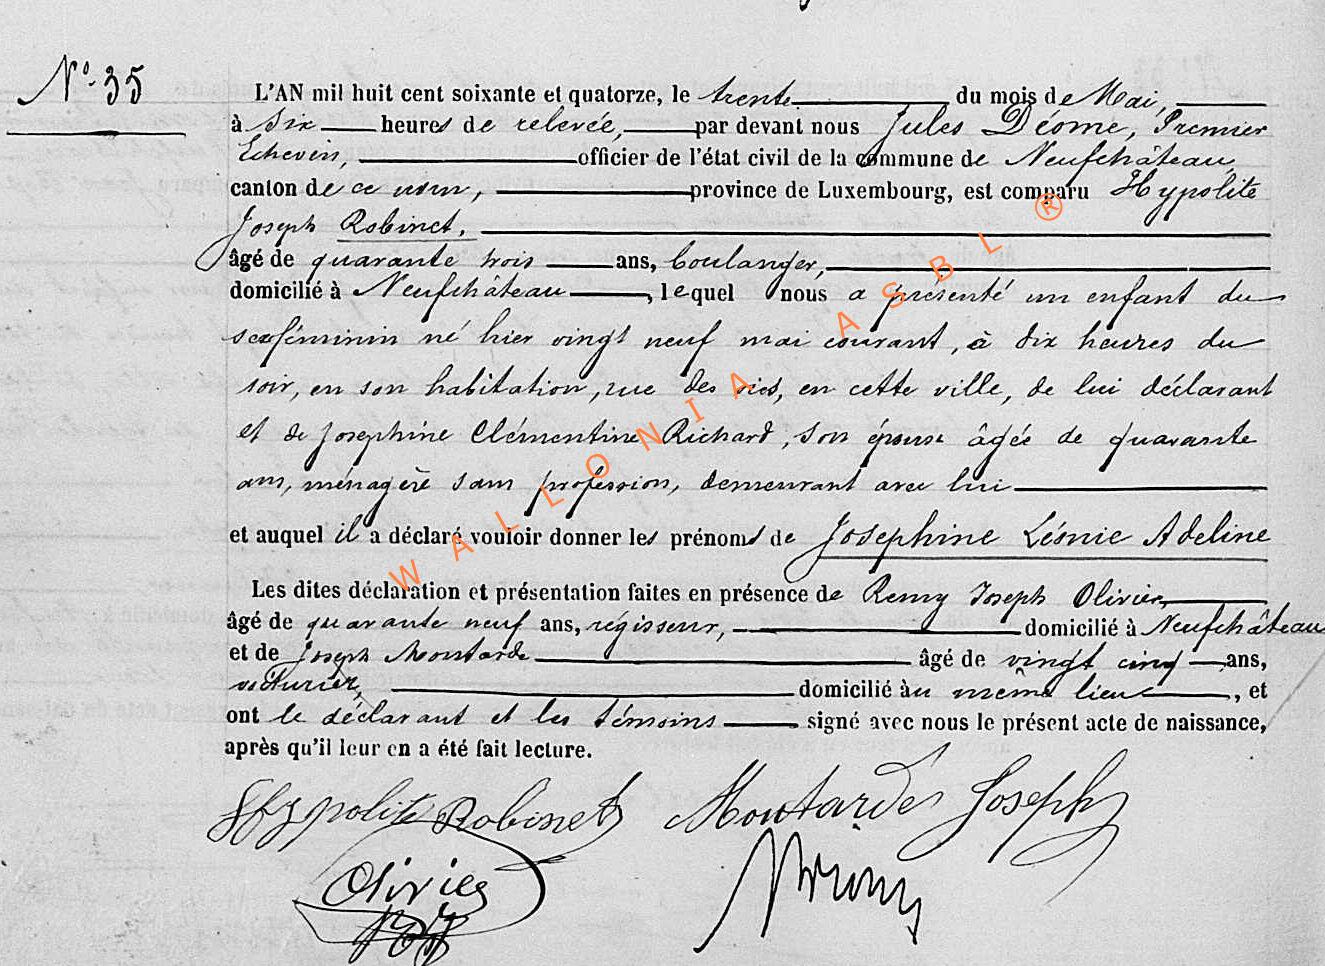 N° 35
L'AN mil huit cent soixante et quatorze, le trente du mois de Mai,
à Six heures de relevée, par devant nous Jules Déome, Premier
Echevin, officier de l'état civil de la commune de Neufchâteau,
canton de ce nom, province de Luxembourg, est comparu Hypolite
Joseph Robinet,
âgé de quarante trois ans, boulanger,
domicilié à Neufchâteau, lequel nous a présenté un enfant du
sexe féminin né hier vingt neuf mai courant, à dix heures du
soir, en son habitation, rue des, en cette ville, de lui déclarant
et de Joséphine Clémentine Richard, son épouse âgée de quarante
ans, ménagère sans profession, demeurant avec lui
et auquel il a déclaré vouloir donner les prénoms de Joséphine Léonie Adeline
Les dites déclaration et présentation faites en présence de Remy Joseph Olivier,
âgé de quarante neuf ans, régisseur, domicilié à Neufchâteau
et de Joseph Moutarde âgé de vingt cinq ans,
voiturier, domicilié au même lieu, et
ont le déclarant et les témoins signé avec nous le présent acte de naissance,
après qu'il leur en a été fait lecture.
Hypolite Robinet Moutarde Joseph
Olivier
WALLONIA ASBL ®